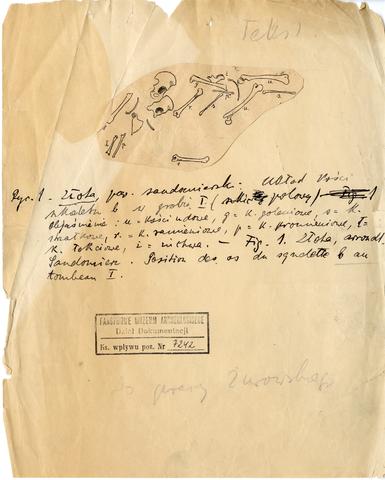 Tekst
Ryc. 1. Złota, pow. sandomierski. Układ kości
szkieletu b w grobie I (szkic polowy)
Objaśnienie: u = kości udowe, g = k. goleniowe, s = k.
strzałkowe, r = k. ramieniowe, p = k. promieniowe, ł =
k. łokciowe, ż = żuchwa. — Fig. 1. Złota, arrond.
Sandomierz. Position des os du squelette b au
tombeau I.
PAŃSTWOWE MUZEUM ARCHEOLOGICZNE
Dział Dokumentacji
Ks. wpływu poz. Nr 7242
pracy Żurowskiego